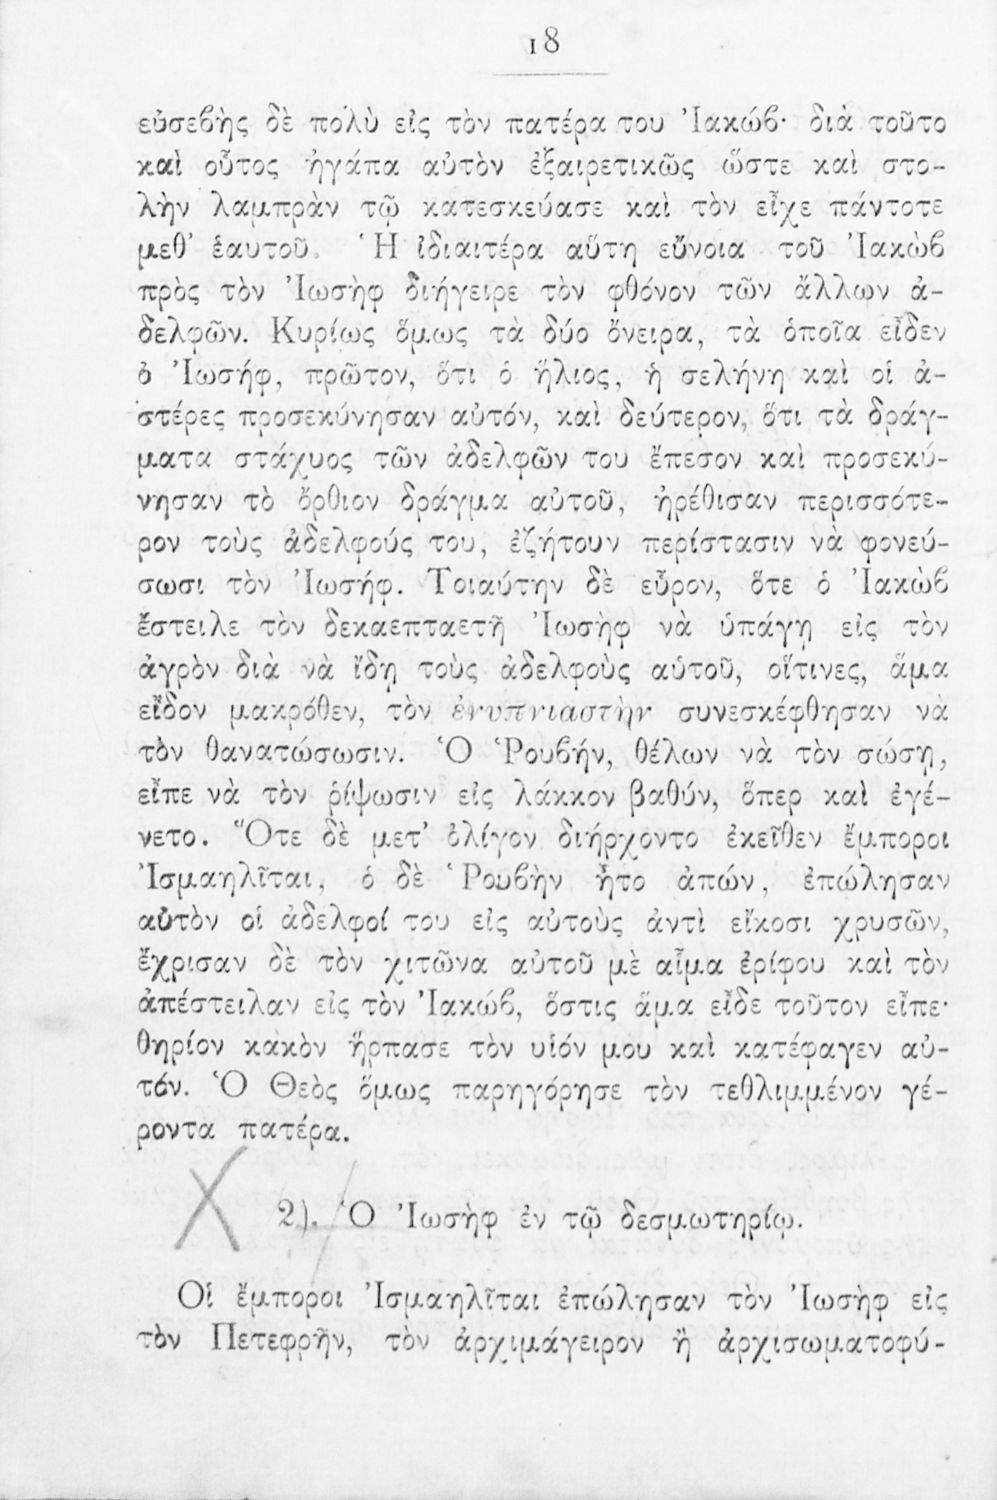 18
εὐσεβὴς δὲ πολὺ εἰς τὸν πατέρα του Ἰακώβ· διὰ τοῦτο
καὶ οὗτος ἠγάπα αὐτὸν ἐξαιρετικῶς ὥστε καὶ στο-
λὴν λαμπρὰν τῷ κατεσκεύασε καὶ τὸν εἶχε πάντοτε
μεθ' ἑαυτοῦ. Ἡ ἰδιαιτέρα αὕτη εὔνοια τοῦ Ἰακὼβ
πρὸς τὸν Ἰωσὴφ διήγειρε τὸν φθόνον τῶν ἄλλων ἀ-
δελφῶν. Κυρίως ὅμως τὰ δύο ὄνειρα, τὰ ὁποῖα εἶδεν
ὁ Ἰωσήφ, πρῶτον, ὅτι ὁ ἥλιος, ἡ σελήνη καὶ οἱ ἀ-
στέρες προσεκύνησαν αὐτόν, καὶ δεύτερον, ὅτι τὰ δράγ-
ματα στάχυος τῶν ἀδελφῶν του ἔπεσον καὶ προσεκύ-
νησαν τὸ ὄρθιον δράγμα αὐτοῦ, ἠρέθισαν περισσότε-
ρον τοὺς ἀδελφούς του, ἐζήτουν περίστασιν νὰ φονεύ-
σωσι τὸν Ἰωσήφ. Τοιαύτην δὲ εὗρον, ὅτε ὁ Ἰακὼβ
ἔστειλε τὸν δεκαεπταετῆ Ἰωσὴφ νὰ ὑπάγῃ εἰς τὸν
ἀγρὸν διὰ νὰ ἴδῃ τοὺς ἀδελφοὺς αὑτοῦ, οἵτινες, ἅμα
εἶδον μακρόθεν, τὸν ἐνυπνιαστὴν συνεσκέφθησαν νὰ
τὸν θανατώσωσιν. Ὁ Ῥουβήν, θέλων νὰ τὸν σώσῃ,
εἶπε νὰ τὸν ῥίψωσιν εἰς λάκκον βαθύν, ὅπερ καὶ ἐγέ-
νετο. Ὅτε δὲ μετ' ὀλίγον διήρχοντο ἐκεῖθεν ἔμποροι
Ἰσμαηλῖται, ὁ δὲ Ῥουβὴν ἦτο ἀπών, ἐπώλησαν
αὐτὸν οἱ ἀδελφοί του εἰς αὐτοὺς ἀντὶ εἴκοσι χρυσῶν,
ἔχρισαν δὲ τὸν χιτῶνα αὐτοῦ μὲ αἷμα ἐρίφου καὶ τὸν
ἀπέστειλαν εἰς τὸν Ἰακώβ, ὅστις ἅμα εἶδε τοῦτον εἶπε·
θηρίον κακὸν ἥρπασε τὸν υἱόν μου καὶ κατέφαγεν αὐ-
τόν. Ὁ Θεὸς ὅμως παρηγόρησε τὸν τεθλιμμένον γέ-
ροντα πατέρα.
2). Ὁ Ἰωσὴφ ἐν τῷ δεσμωτηρίῳ.
Οἱ ἔμποροι Ἰσμαηλῖται ἐπώλησαν τὸν Ἰωσὴφ εἰς
τὸν Πετεφρῆν, τὸν ἀρχιμάγειρον ἢ ἀρχισωματοφύ-